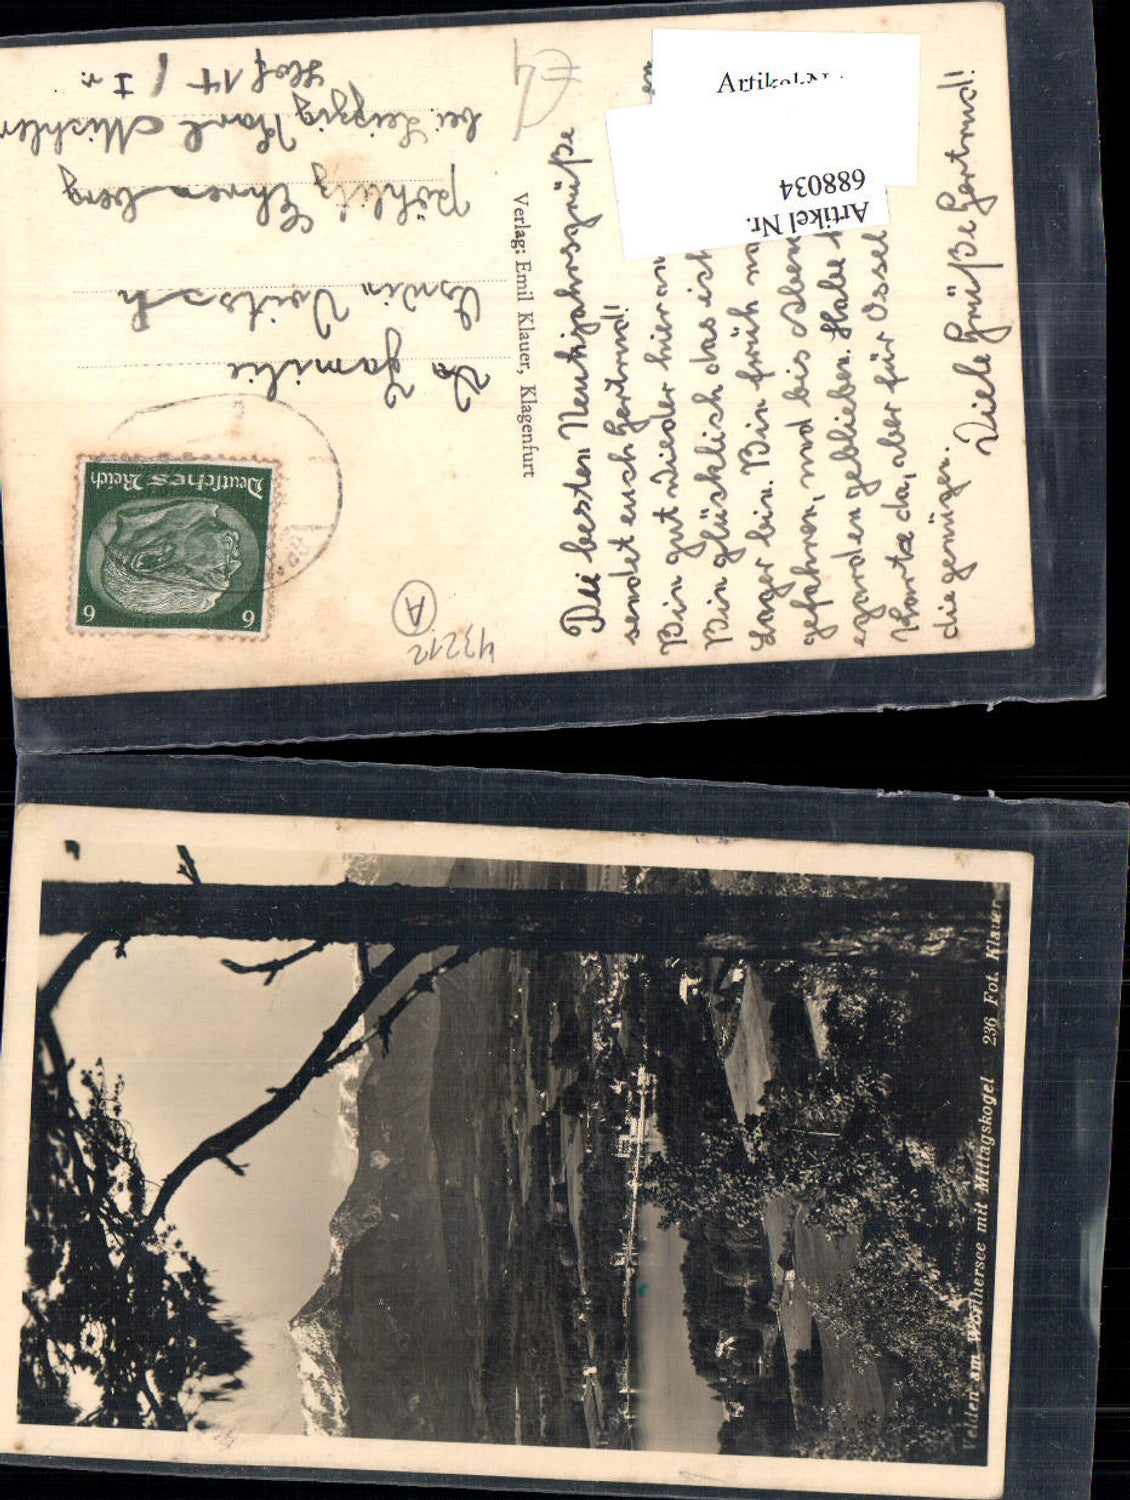 Die besten Neujahrsgrüße
sendet euch Gertrud!
Bin gut wieder hier an
Bin glücklich das ich
Lager bin. Bin früh
gefahren, und bis Aben
geblieben. Habe
Karte da, aber für Ossel
die genügen.
Viele Grüße Gertrud!
Verlag: Emil Klauer, Klagenfurt
Artikel Nr.
688034
Familie
Erwin
Böhlitz Ehrenberg
bei Leipzig Karl
Hof 14 / I r.
Deutsches Reich
6 6
43212
A
Velden am Wörthersee mit Mittagskogel 236 Fot. Klauer